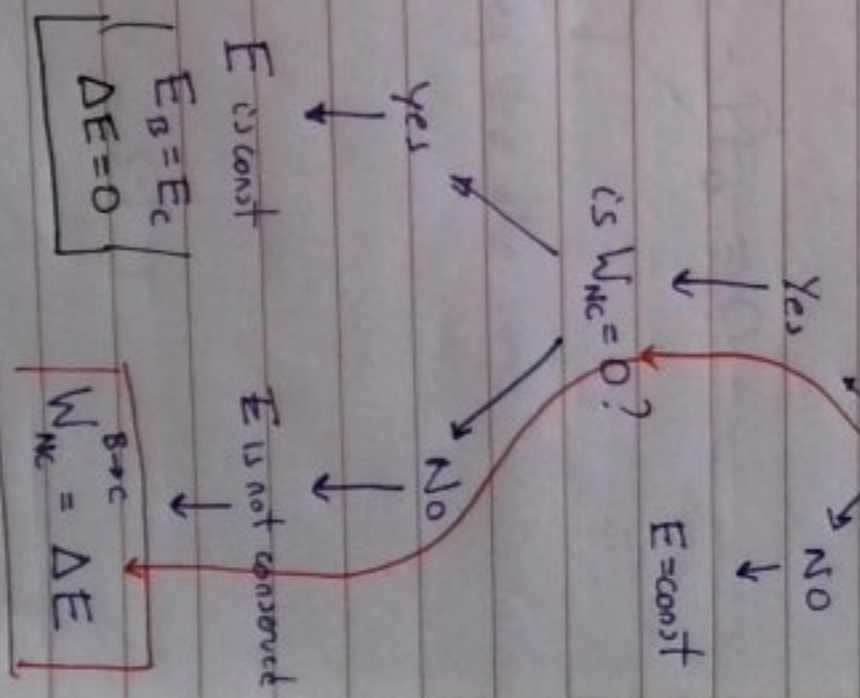 Yes
NO
E=const
is W_NC = 0?
yes
No
E is const
E is not conserved
E_B = E_C
ΔE = 0
W_NC^B→C = ΔE